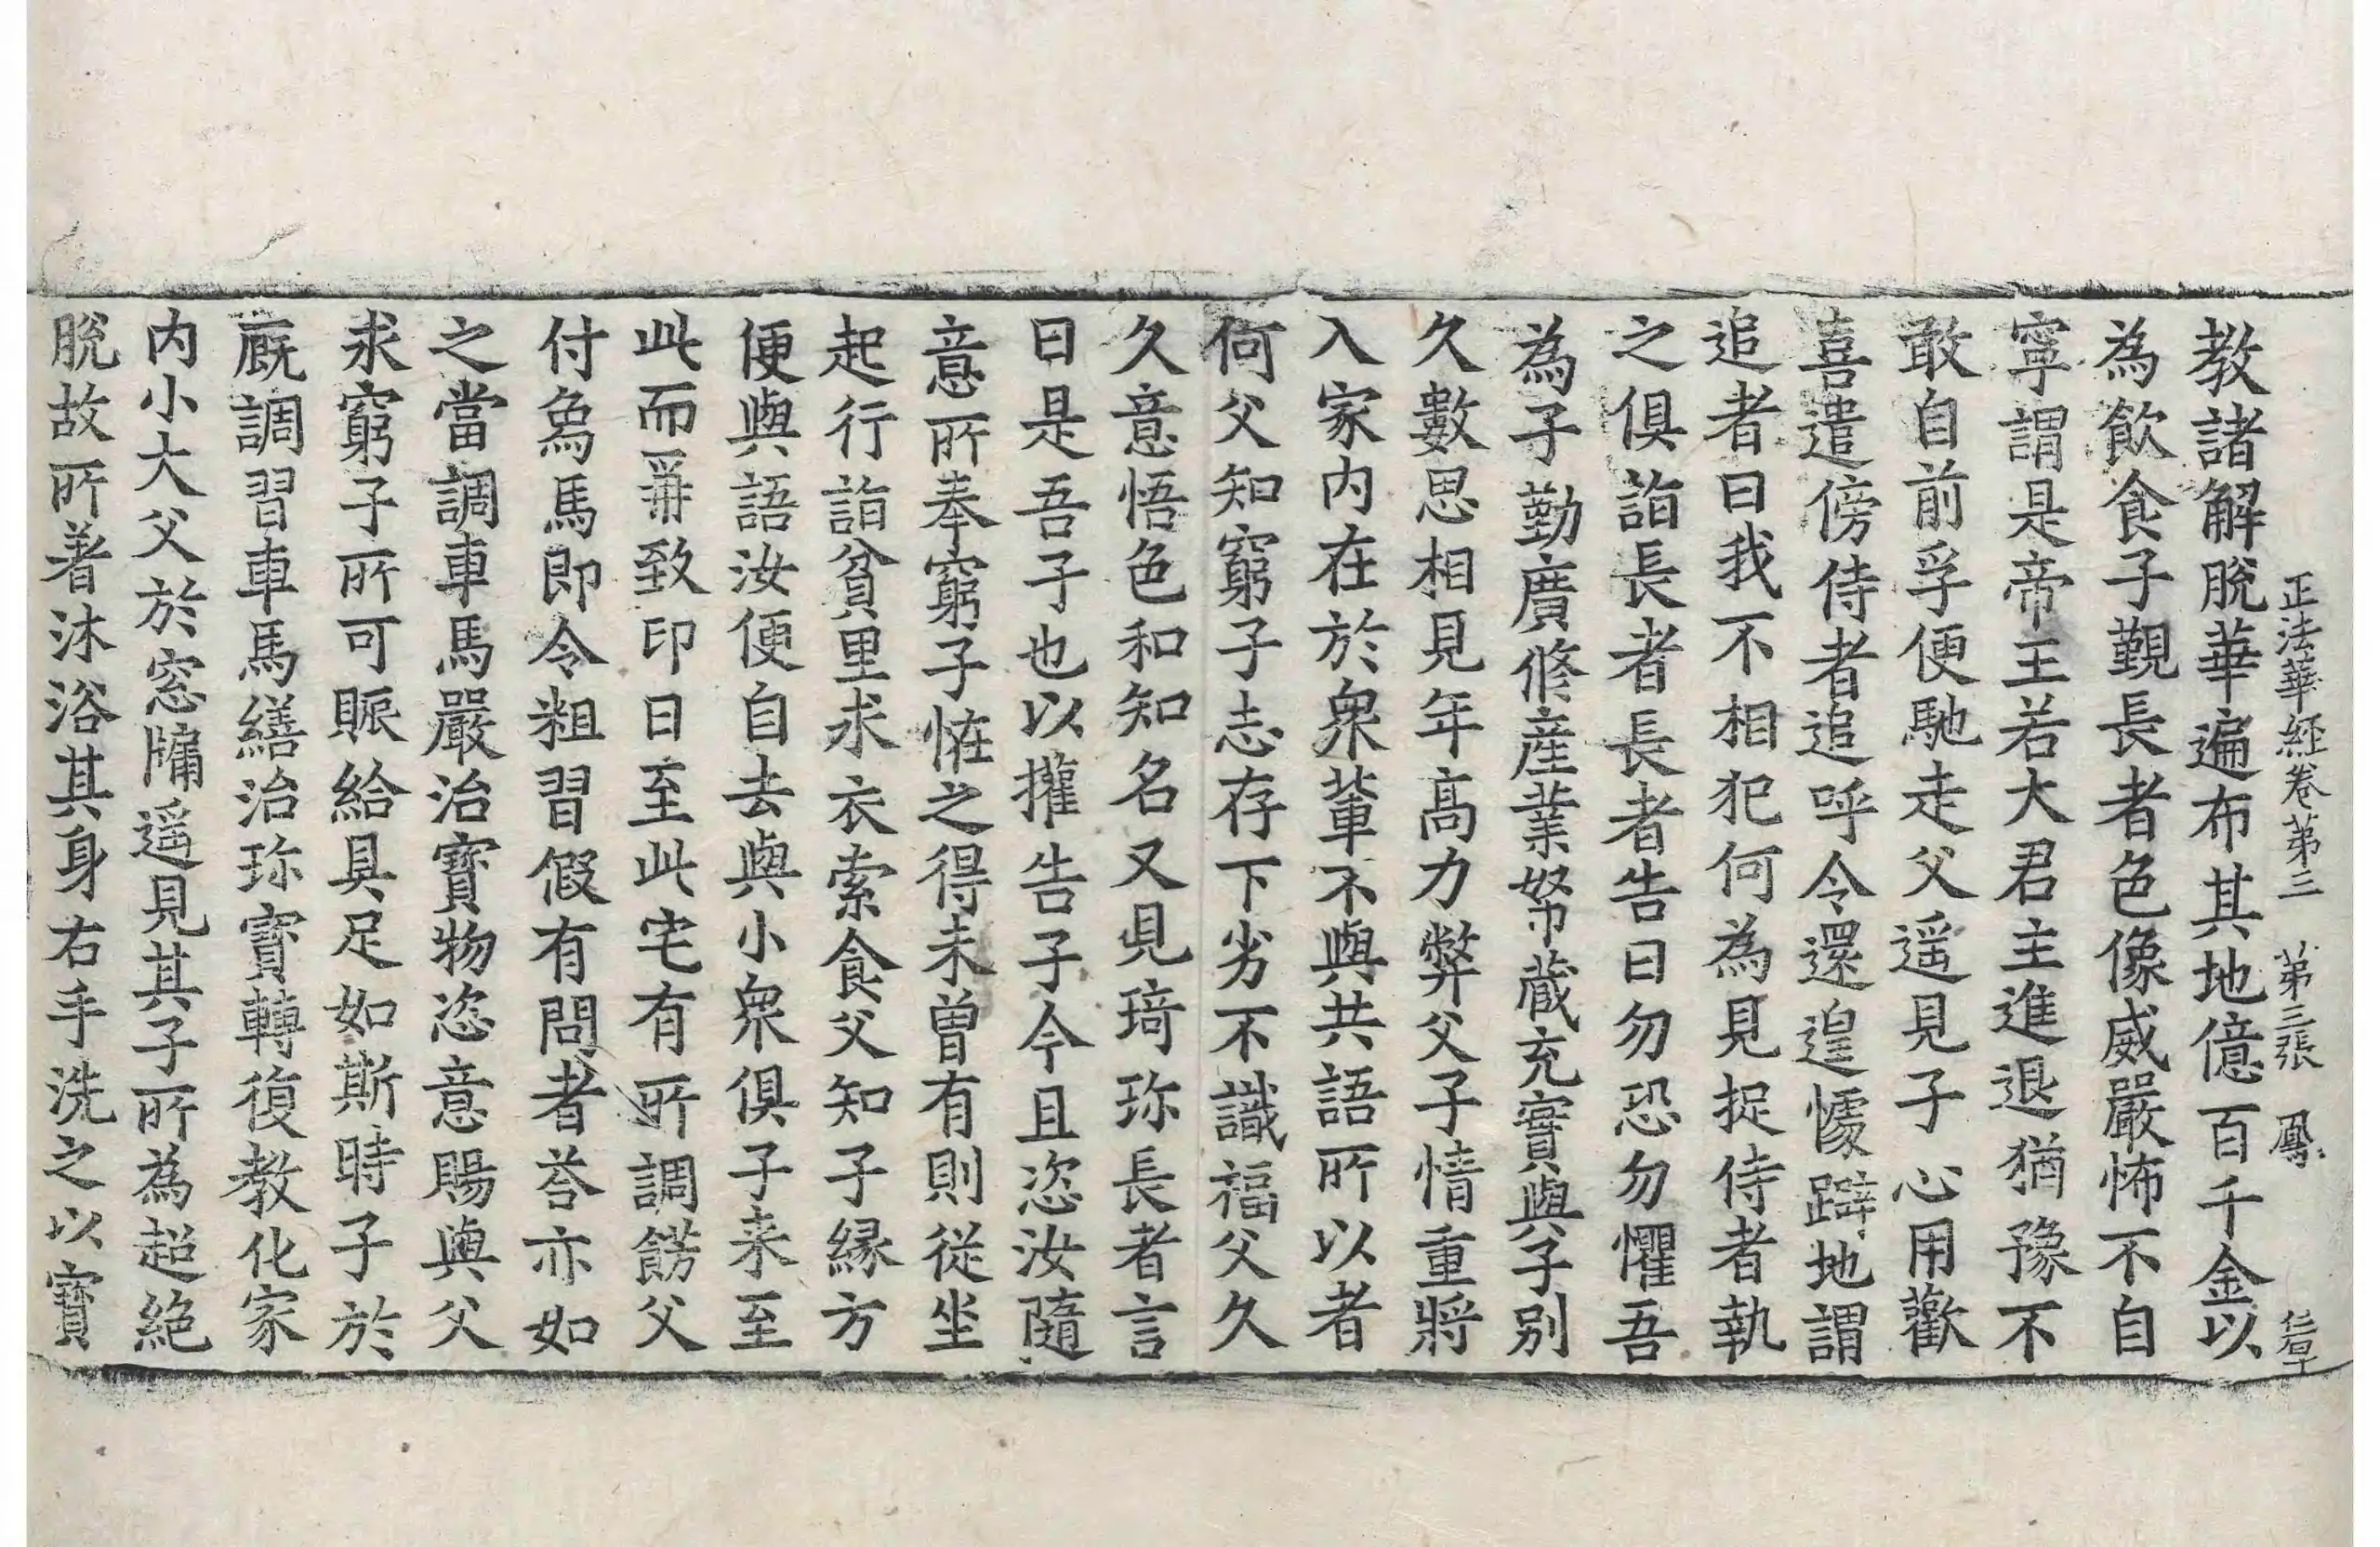 正法華経巻第三　第三張　鳳
教諸解脫華遍布其地億百千金以
為飲食子覲長者色像威嚴怖不自
寧謂是帝王若大君主進退猶豫不
敢自前孚便馳走父遥見子心用歡
喜遣傍侍者追呼令還遑懅躃地謂
追者曰我不相犯何為見捉侍者執
之俱詣長者長者告曰勿恐勿懼吾
為子勤廣修産業帑藏充實與子別
久數思相見年髙力弊父子情重將
入家内在於衆輩不與共語所以者
何父知窮子志存下劣不識福父久
久意悟色和知名又見琦珎長者言
曰是吾子也以攉告子今且恣汝隨
意所奉窮子恠之得未曽有則從坐
起行詣貧里求衣索食父知子緣方
便與語汝便自去與小衆俱子来至
此而再致印曰至此宅有所調餝父
付象馬即令粗習假有問者荅亦如
之當調車馬嚴治寶物恣意賜與父
求窮子所可賑給具足如斯時子於
廐調習車馬繕治珎寶轉復教化家
内小大父於窓牖遥見其子所為超絶
脫故所著沐浴其身右手洗之以寶